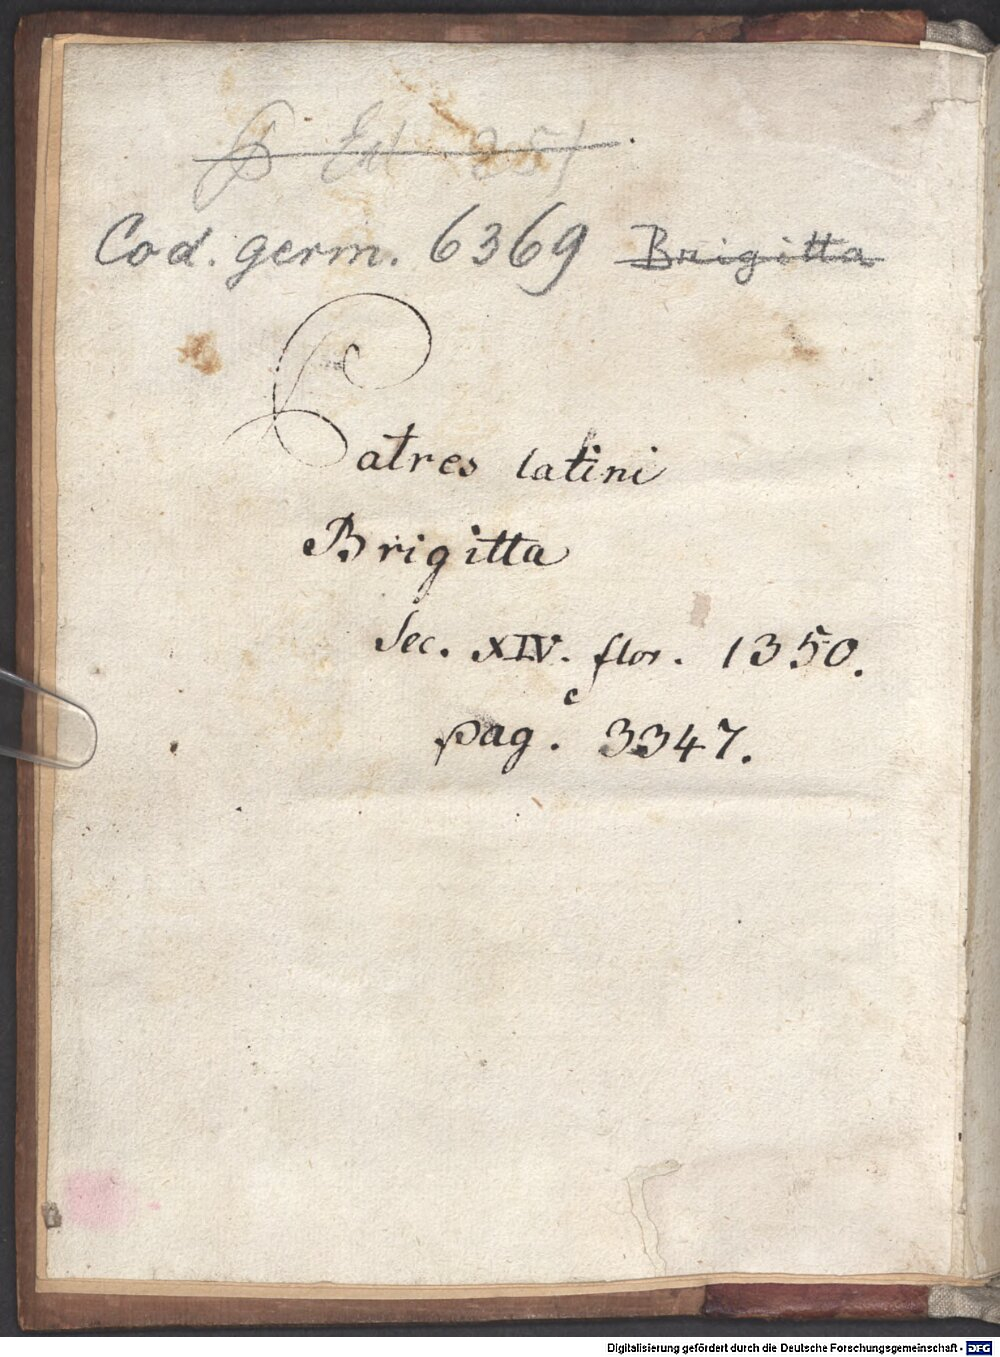 Cod. germ. 6369 Brigitta
Patres latini
Brigitta
Sec. XIV. flor. 1350.
pag. 3347.
Digitalisierung gefördert durch die Deutsche Forschungsgemeinschaft - DFG